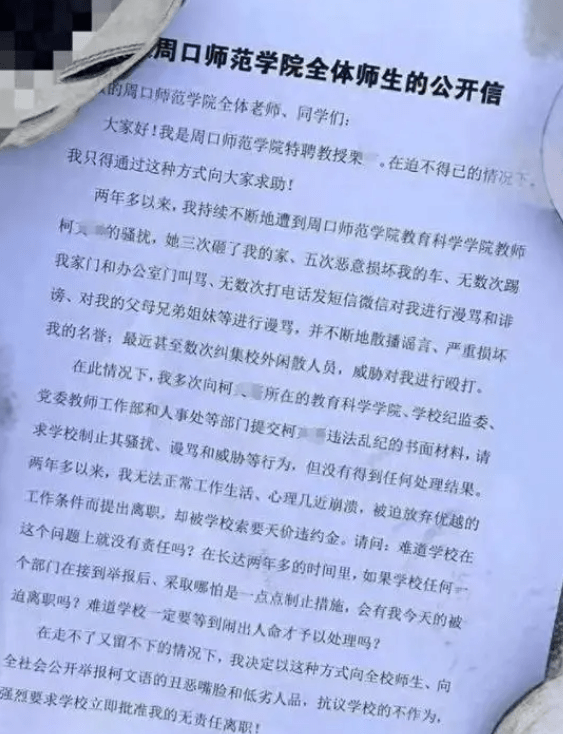 周口师范学院全体师生的公开信
的周口师范学院全体老师、同学们：
大家好！我是周口师范学院特聘教授栗 。在迫不得已的情况下，
我只得通过这种方式向大家求助！
两年多以来，我持续不断地遭到周口师范学院教育科学学院教师
柯 的骚扰，她三次砸了我的家、五次恶意损坏我的车、无数次踢
我家门和办公室门叫骂、无数次打电话发短信微信对我进行漫骂和诽
谤、对我的父母兄弟姐妹等进行漫骂，并不断地散播谣言、严重损坏
我的名誉；最近甚至数次纠集校外闲散人员，威胁对我进行殴打。
在此情况下，我多次向柯 所在的教育科学学院、学校纪监委、
党委教师工作部和人事处等部门提交柯 违法乱纪的书面材料，请
求学校制止其骚扰、谩骂和威胁等行为，但没有得到任何处理结果。
两年多以来，我无法正常工作生活、心理几近崩溃，被迫放弃优越的
工作条件而提出离职，却被学校索要天价违约金。请问：难道学校在
这个问题上就没有责任吗？在长达两年多的时间里，如果学校任何一
个部门在接到举报后、采取哪怕是一点点制止措施，会有我今天的被
迫离职吗？难道学校一定要等到闹出人命才予以处理吗？
在走不了又留不下的情况下，我决定以这种方式向全校师生、向
全社会公开举报柯文语的丑恶嘴脸和低劣人品，抗议学校的不作为，
强烈要求学校立即批准我的无责任离职！